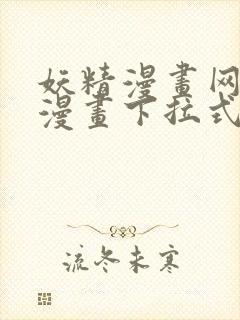 妖精漫畫网
漫畫下拉式
流冬未寒